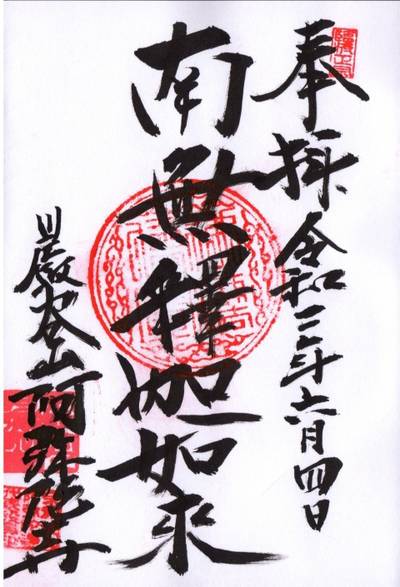 奉拝 令和三年六月四日
南無釋迦如来
山阿弥陀寺